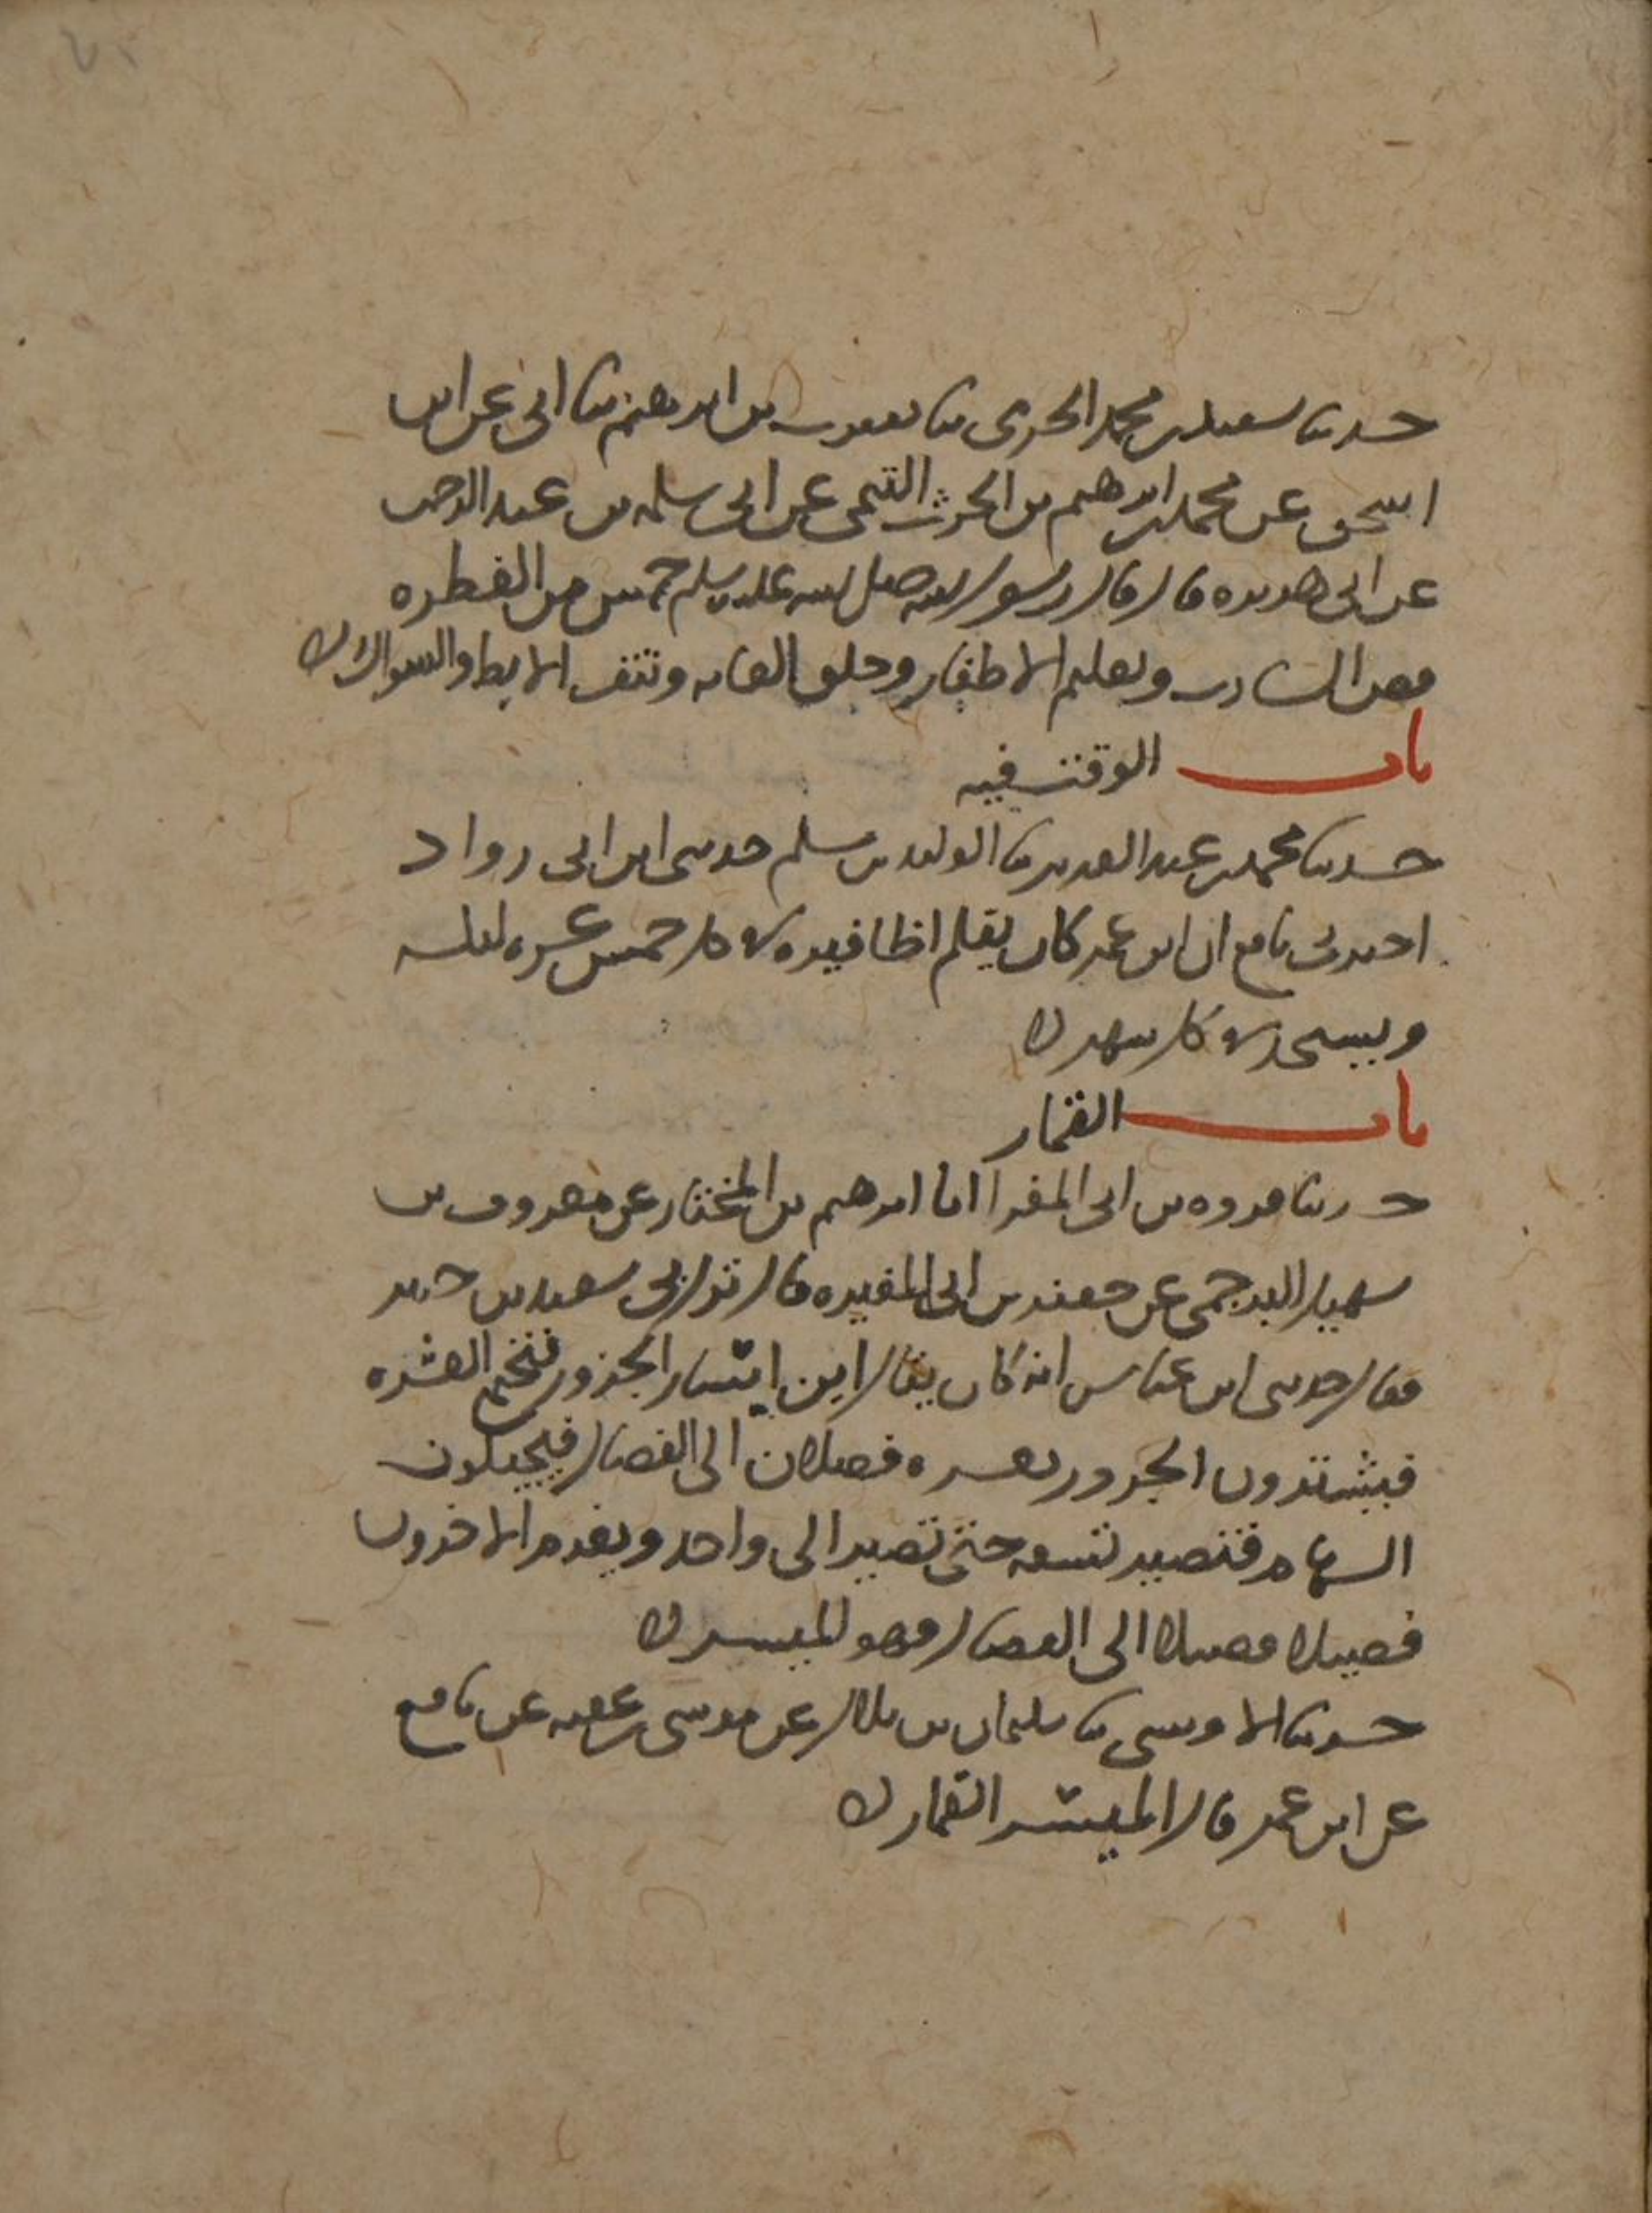 حدثنا سعيد بن محمد الجرمي ثنا يعقوب بن ابرهيم ثنا ابي عن ابن
اسحق عن محمد بن ابرهيم بن الحرث التيمي عن ابي سلمه بن عبد الرحمن
عن ابي هريره قال قال رسول الله صلى الله عليه وسلم خمس من الفطره
قص الشارب وتقليم الاظفار وحلق العانه ونتف الابط والسواك
باب الوقت فيه
حدثنا محمد بن عبد العزيز ثنا الوليد بن مسلم حدثني ابن ابي رواد
اخبرني نافع ان ابن عمر كان يقلم اظافيره في كل خمس عشره ليله
ويستحد في كل شهر
باب القمار
حدثنا فروه بن ابي المغرا انا ابرهيم بن المختار عن معروف بن
سهيل البرجمي عن جعفر بن ابي المغيره قال نزل بي سعيد بن جبير
فقال حدثني ابن عباس انه كان يقال اين ايسار الجزور فيجتمع العشره
فيشترون الجزور بعشره فصلان الى الفصال فيجيلون
السهام فتصير تسعه حتى تصير الى واحد ويغرم الاخرون
فصيلا فصيلا الى الفصال فهو الميسر
حدثنا الاويسي ثنا سليمان بن بلال عن موسى بن عقبه عن نافع
عن ابن عمر قال الميسر القمار